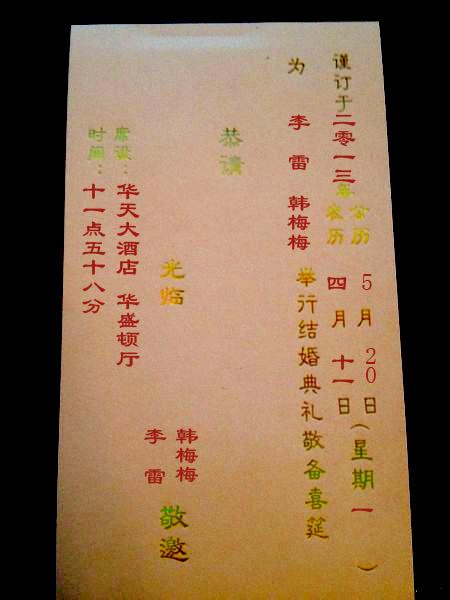 谨订于二零一三年
公历 5月20日(星期一)
农历 四月十一日
为 李雷 韩梅梅 举行结婚典礼敬备喜筵
恭请
光临
韩梅梅
李雷
敬邀
席设：华天大酒店 华盛顿厅
时间：十一点五十八分